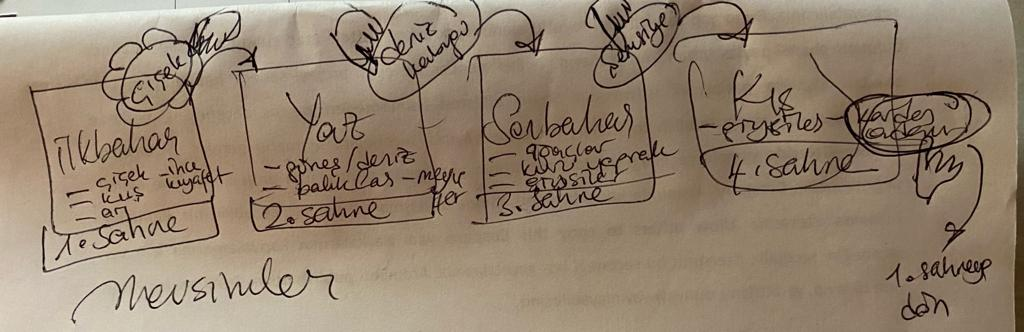 Çiçek
ilkbahar
— çiçek — ince kıyafet
— kuş
— arı
1. Sahne
deniz
kabuğu
Yaz
— güneş/deniz
— balıklar — meyveler
2. Sahne
Şemsiye
Sonbahar
— ağaçlar
— kuru yaprak
— giysiler
3. Sahne
Kış
— giysiler —
kardan
kardan
4. Sahne
1. sahneye
dön
Mevsimler